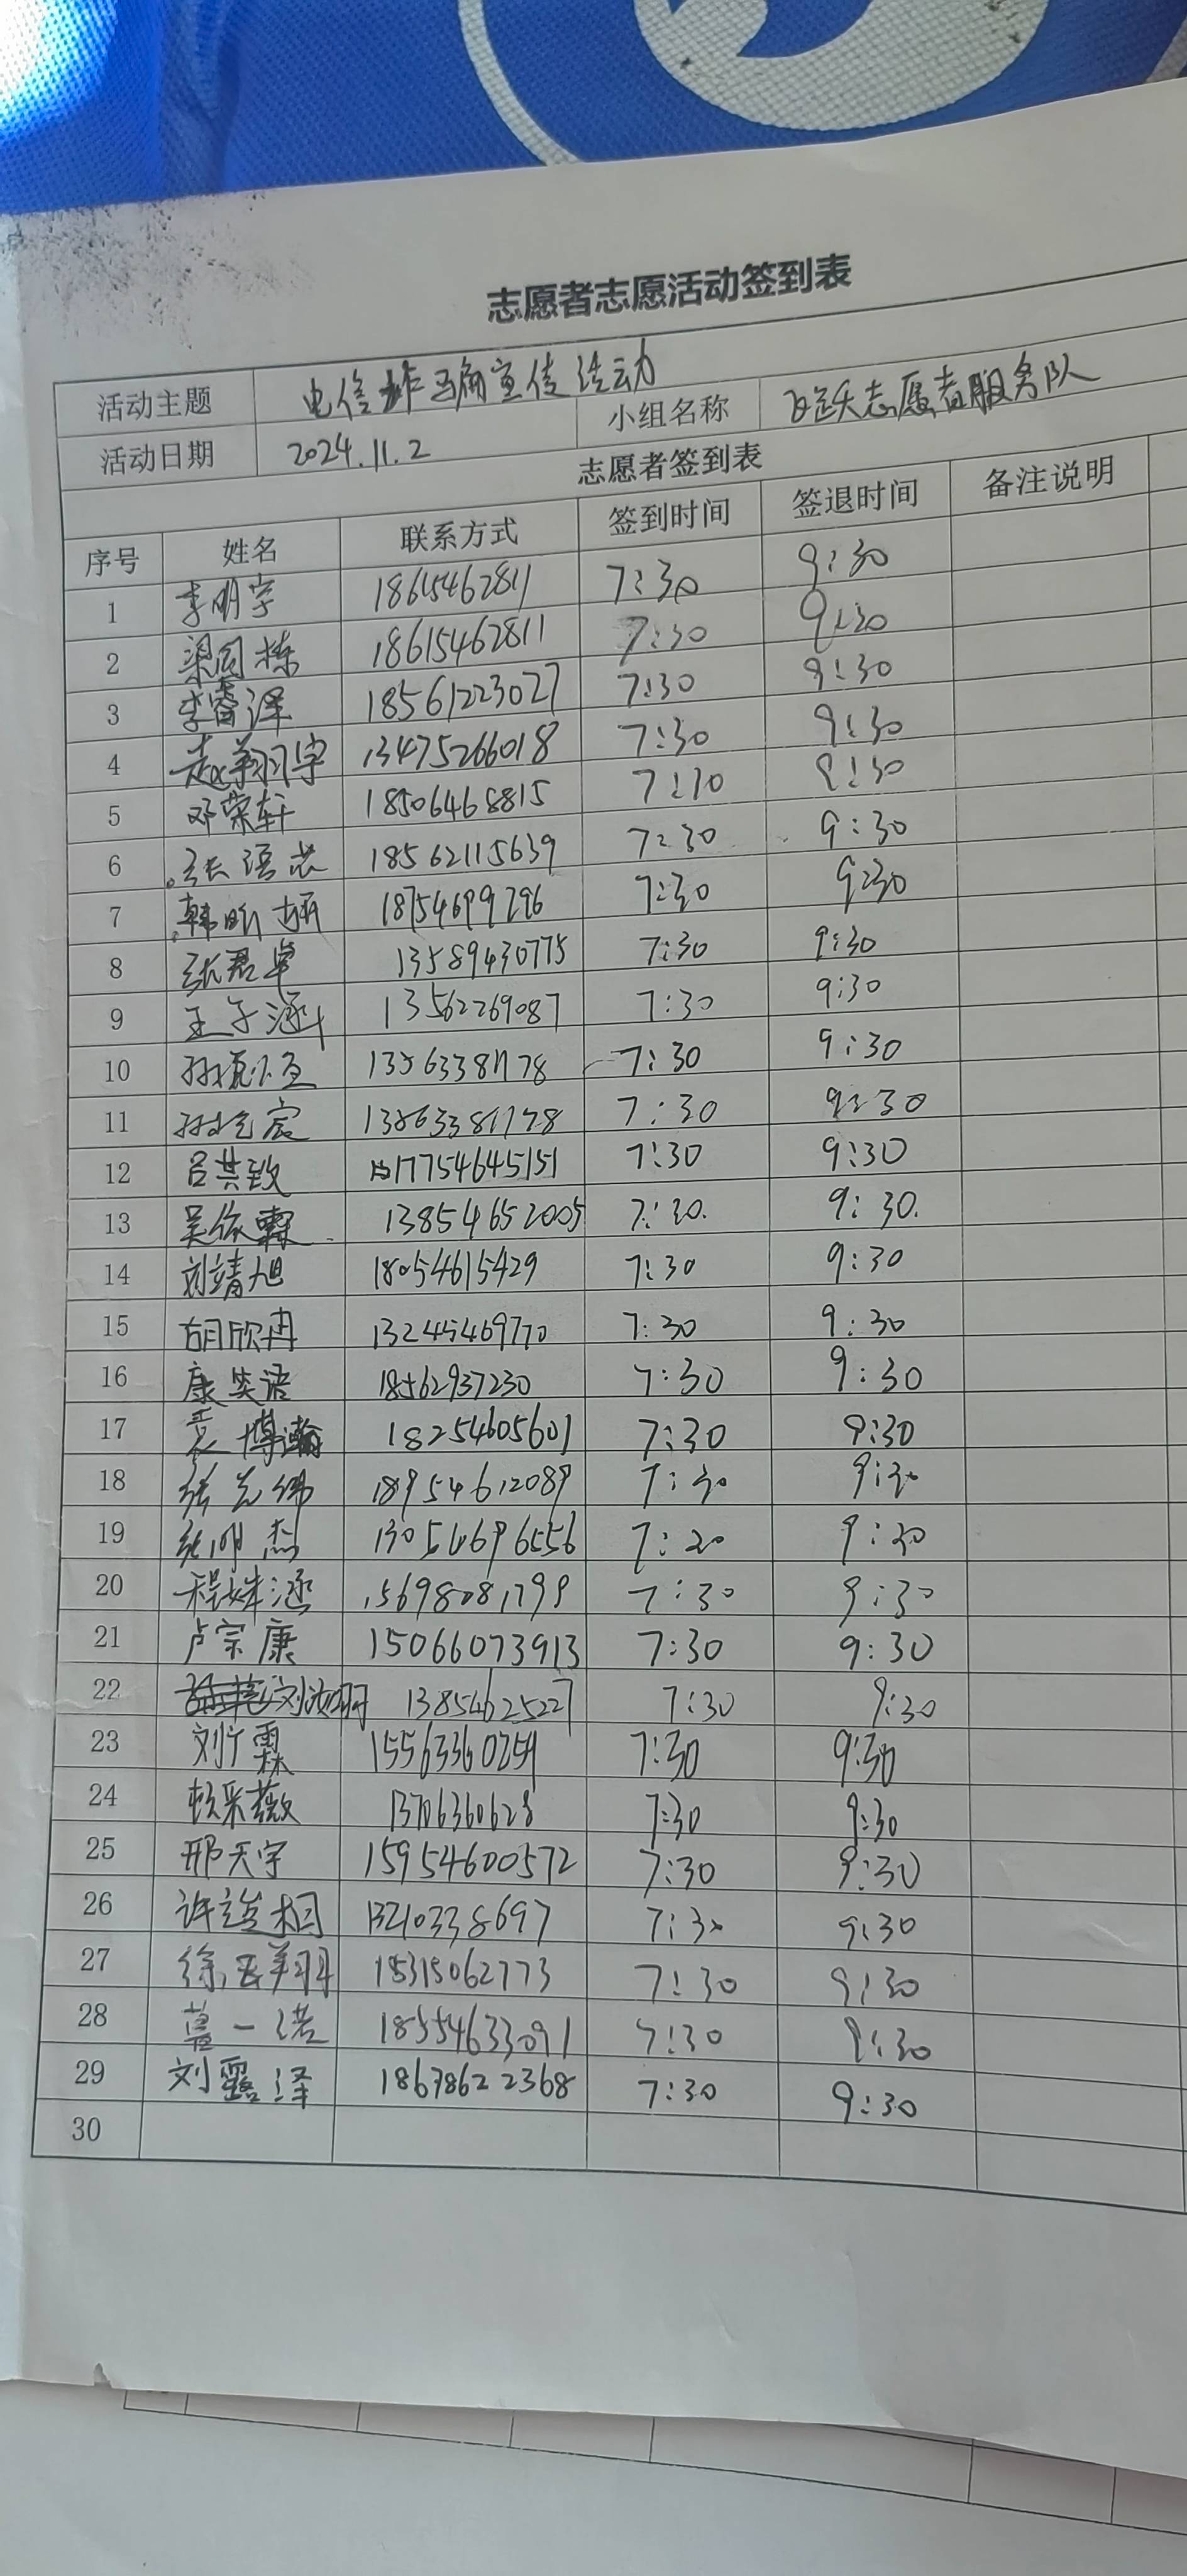 志愿者志愿活动签到表
活动主题 电信诈骗宣传活动
活动日期 2024.11.2 小组名称 飞跃志愿者服务队
志愿者签到表
序号 姓名 联系方式 签到时间 签退时间 备注说明
1 李明宇 18615462811 7:30 9:30
2 梁国栋 18615462811 7:30 9:30
3 李睿泽 18561223027 7:30 9:30
4 赵翔宇 13475266018 7:30 9:30
5 邓荣轩 18506468815 7:10 9:30
6 张语芯 18562115639 7:30 9:30
7 韩昕妍 18754699296 7:30 9:30
8 张君卓 13589430775 7:30 9:30
9 王子涵 13562269087 7:30 9:30
10 7:30 9:30
11 7:30 9:30
12 吕其致 17754645151 7:30 9:30
13 吴依霖 13854652005 7:30. 9:30.
14 刘靖旭 18054615429 7:30 9:30
15 胡欣冉 13245469770 7:30 9:30
16 康笑语 18562937230 7:30 9:30
17 博瀚 18254605601 7:30 9:30
18 18954612089 7:30 9:30
19 张明杰 7:20 9:30
20 程姝涵 15698081799 7:30 9:30
21 卢宗康 15066073913 7:30 9:30
22 刘汝玥 13854625227 7:30 9:30
23 刘宁霖 15563360259 7:30 9:30
24 采薇 13706360628 7:30 9:30
25 邢天宇 15954600572 7:30 9:30
26 许 桓 13210338697 7:30 9:30
27 徐 翔 18315062773 7:30 9:30
28 葛一诺 18554633091 7:30 9:30
29 刘露泽 18678622368 7:30 9:30
30